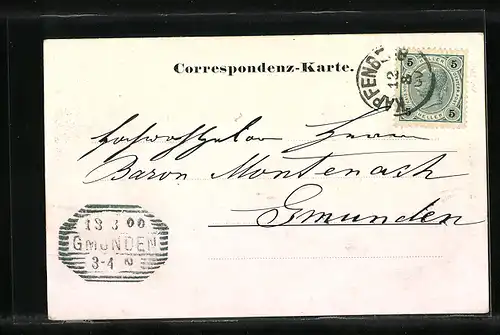 Correspondenz-Karte.
KAPFENBE
12
5 5
HELLER
5 5
Hochwohlgeboren Herrn
Baron Montenach
Gmunden
13 3 00
GMUNDEN
3-4 N